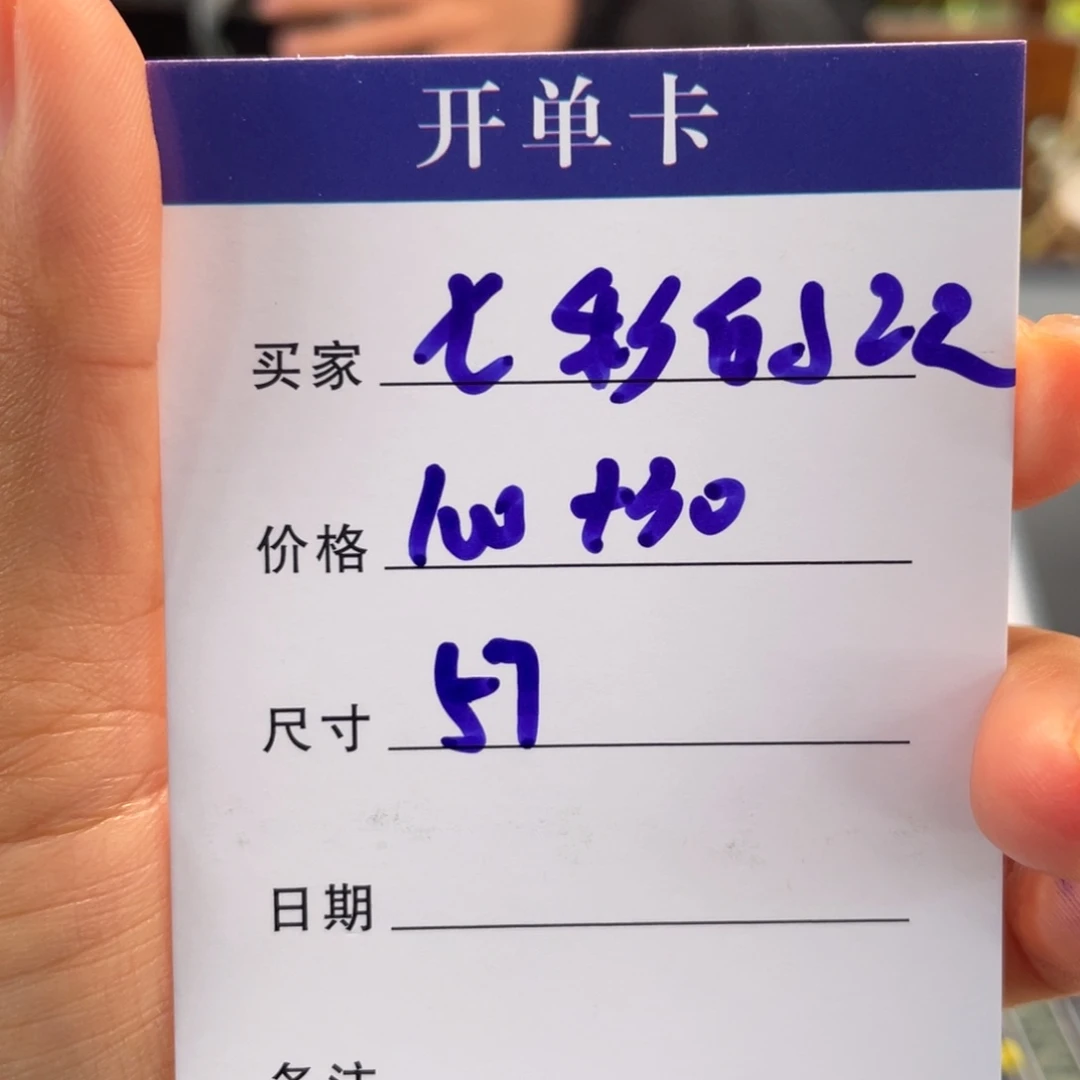 开单卡
买家 七彩的22
价格 100+30
尺寸 57
日期
备注